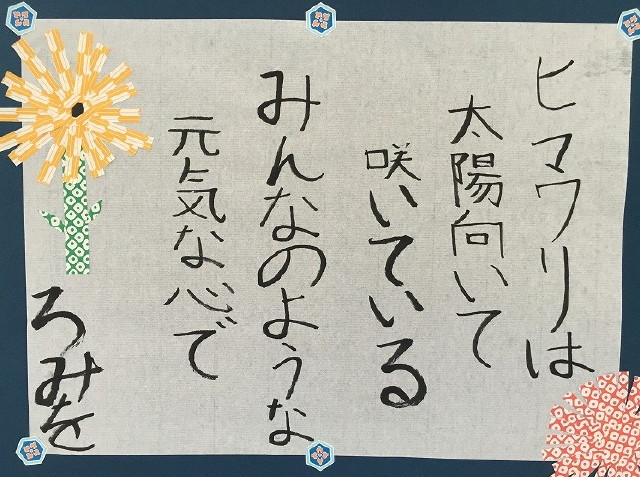 ヒマワリは
太陽向いて
咲いている
みんなのような
元気な心で
ろみを